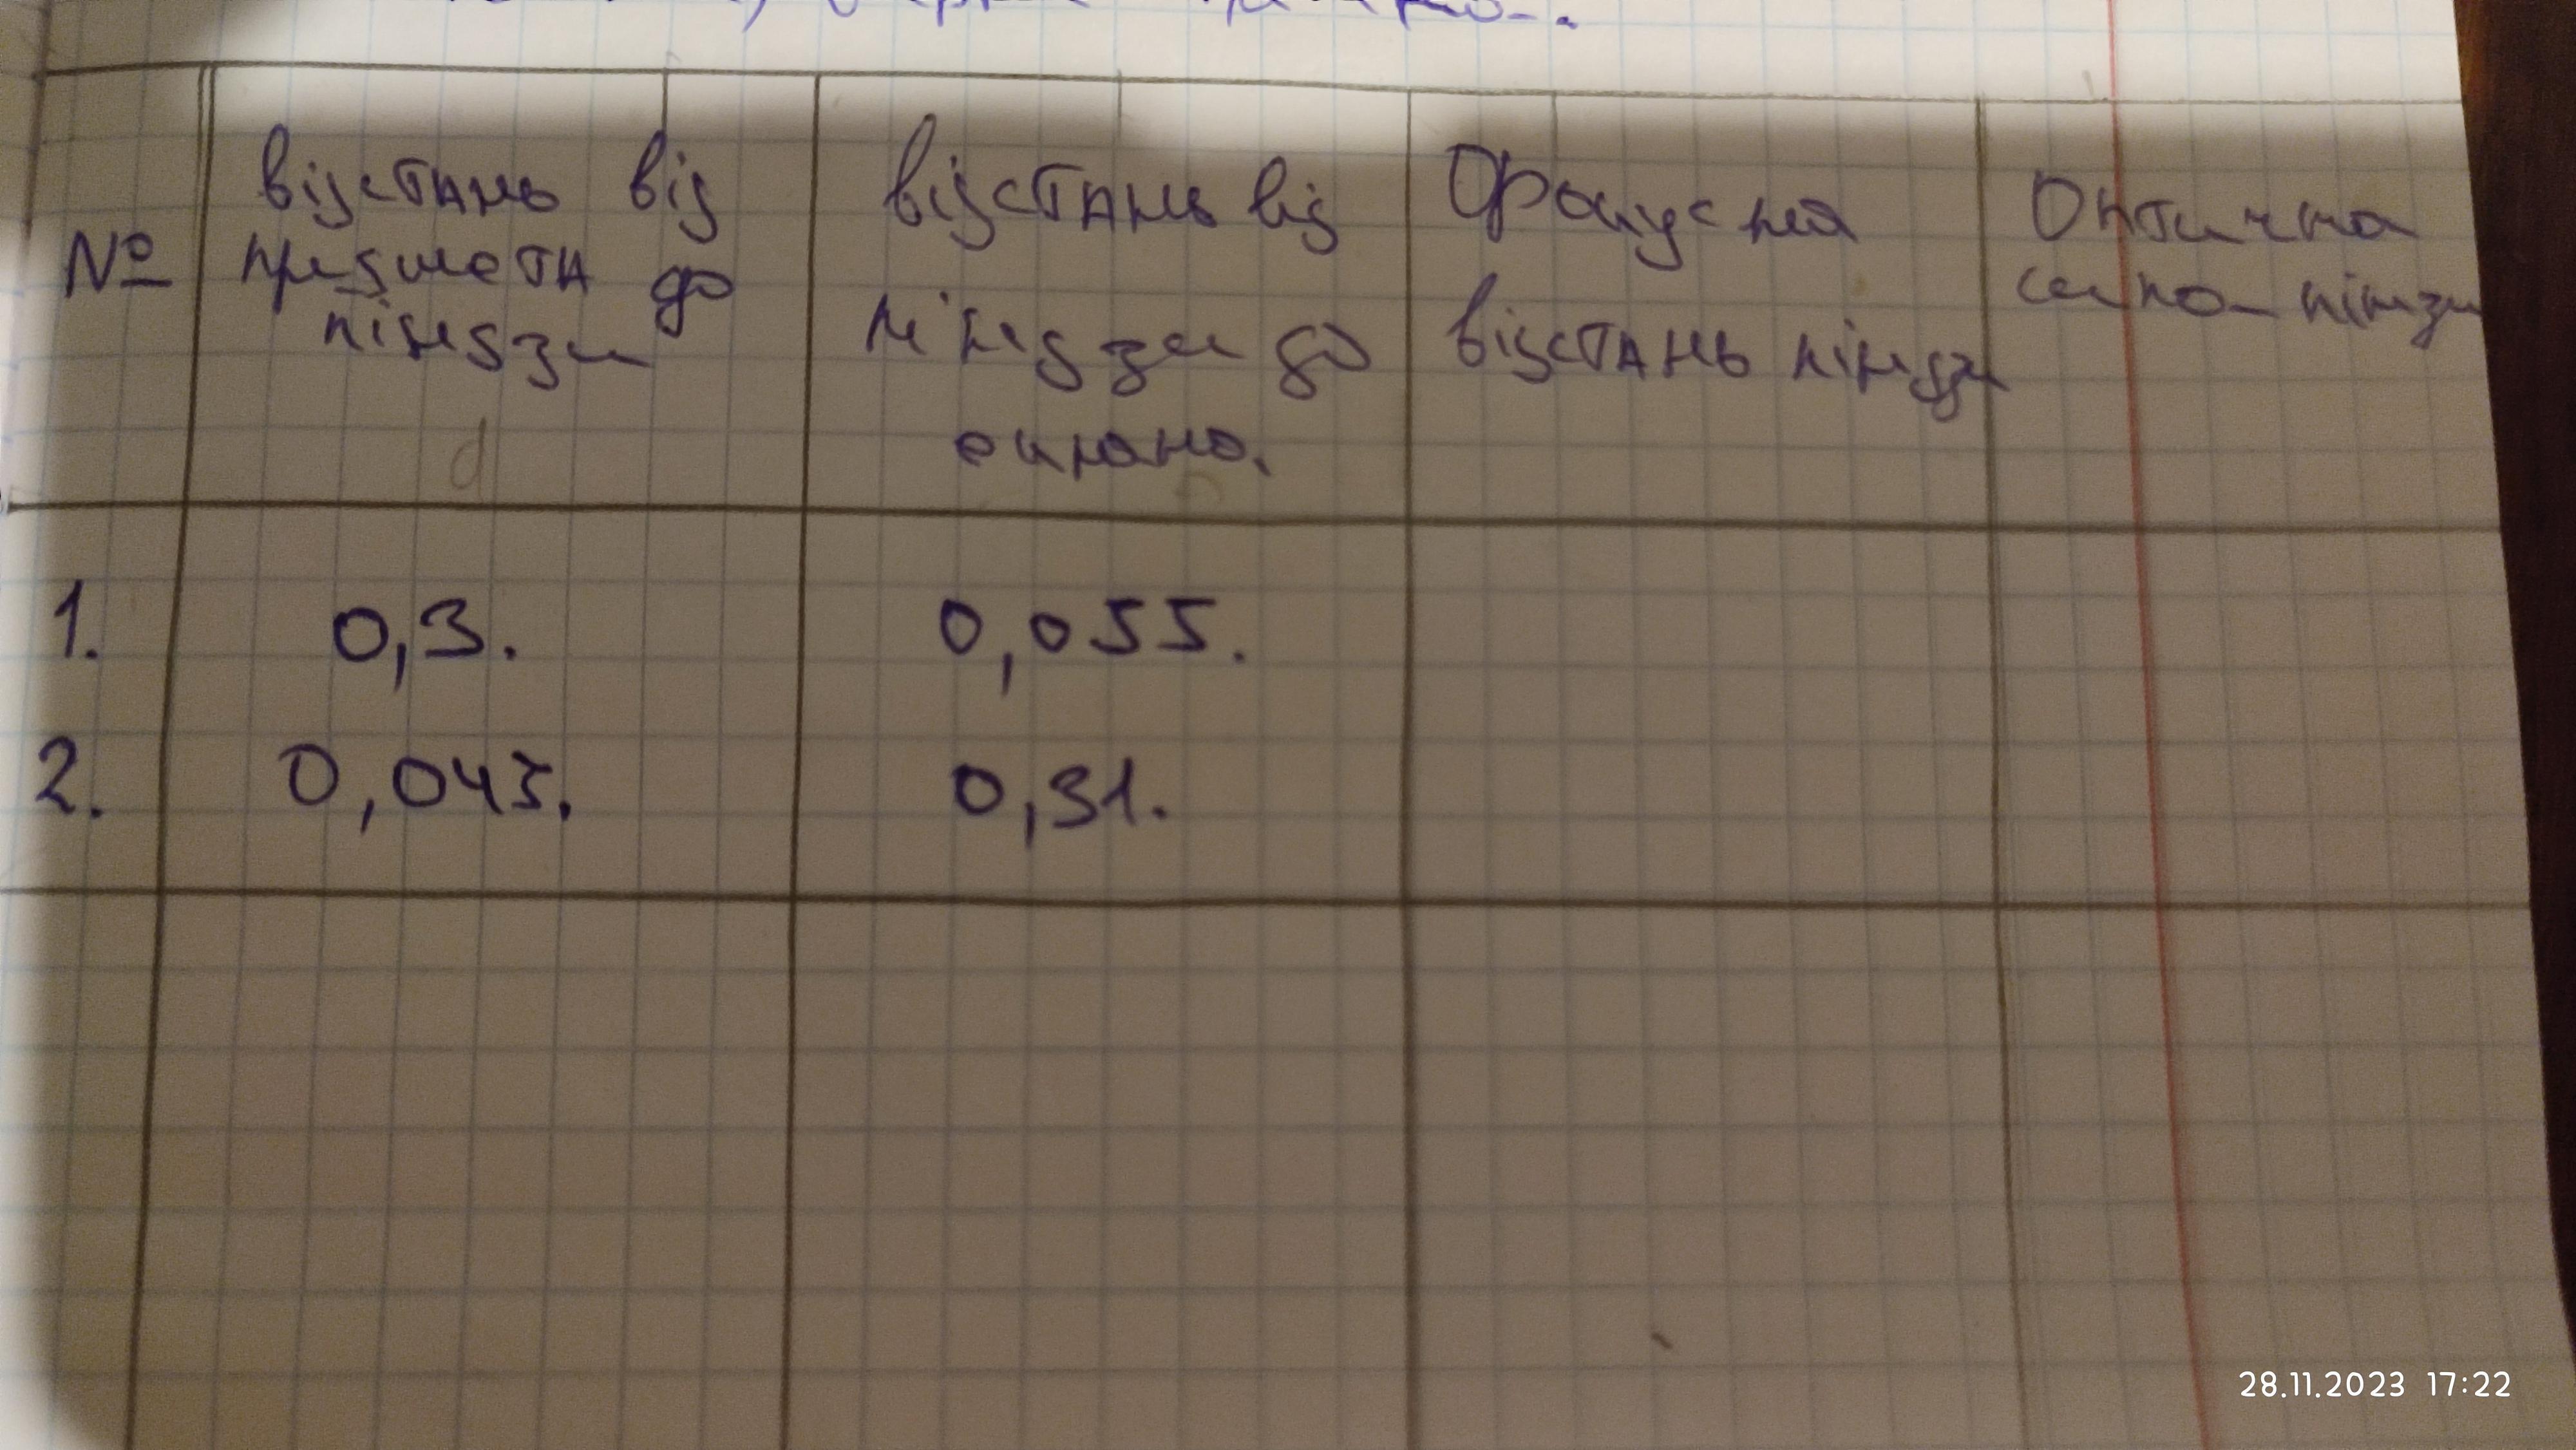 №
відстань від
предмета до
ліндзи
d
відстань від
ліндзи до
екрана.
Фокусна
відстань ліндзи
Оптична
сила лінзи
1. 0,3. 0,055.
2. 0,045. 0,31.
28.11.2023 17:22